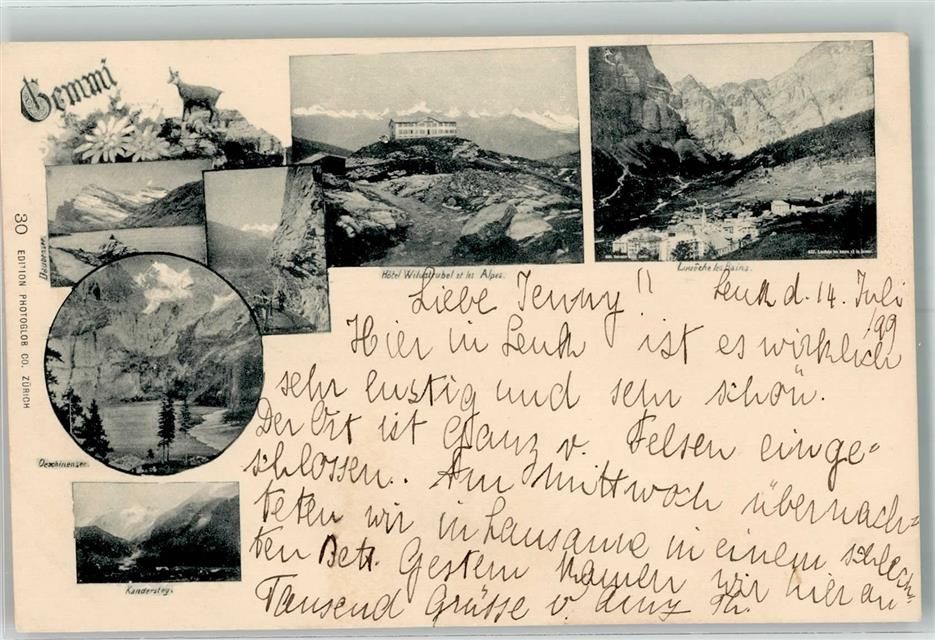 Gemmi
30 EDITION PHOTOGLOB CO. ZÜRICH
Daubensee
Hôtel Wildstrubel et les Alpes.
Louèche les Bains.
Oeschinensee.
Kandersteg.
Liebe Jenny!! Leuk d. 14. Juli
/99
Hier in Leuk ist es wirklich
sehr lustig und sehr schön.
Der Ort ist Ganz v. Felsen einge-
schlossen.. Am Mittwoch übernach-
teten wir in Lausanne in einem schlech-
ten Bett. Gestern kamen wir hier an
Tausend Grüsse v.